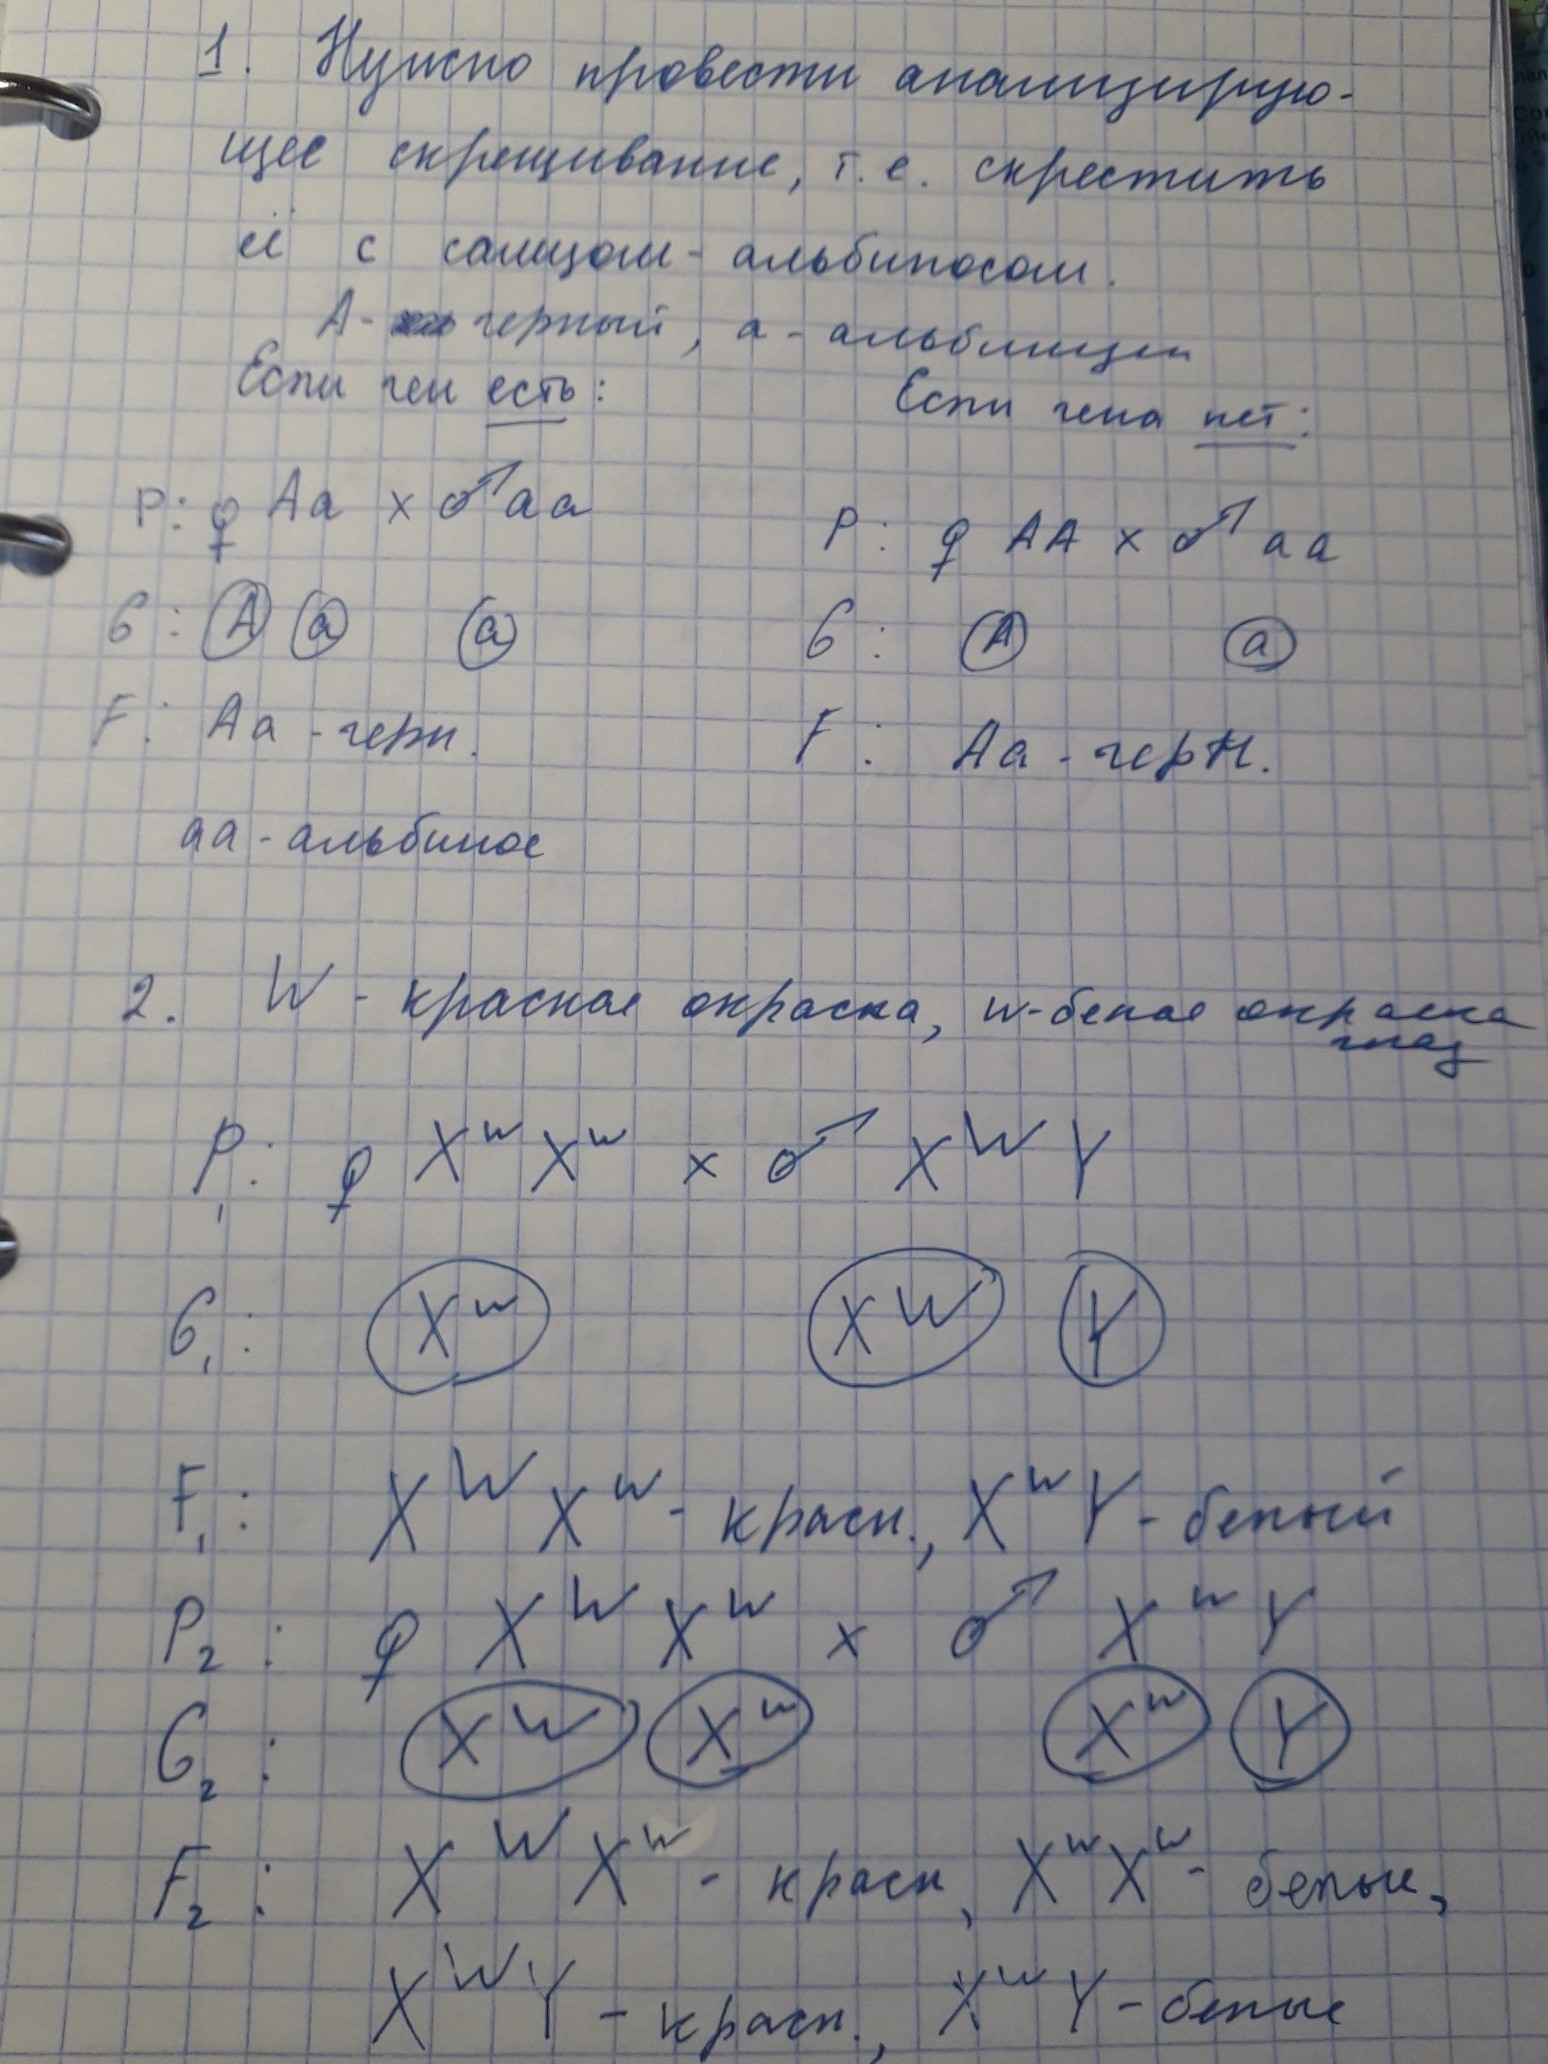 1. Нужно провести анализирую-
щее скрещивание, т.е. скрестить
её с самцом-альбиносом.
А - черный, а - альбинизм
Если ген есть: Если гена нет:
P: ♀ Aa x ♂ aa P: ♀ AA x ♂ aa
G: A a a G: A a
F: Aa - черн. F: Aa - черн.
aa - альбинос
2. W - красная окраска, w - белая окраска
глаз
P₁: ♀ XʷXʷ x ♂ XᵂY
G₁: Xʷ Xᵂ Y
F₁: XᵂXʷ - красн., XʷY - белый
P₂: ♀ XᵂXʷ x ♂ XʷY
G₂: Xᵂ Xʷ Xʷ Y
F₂: XᵂXʷ - красн, XʷXʷ - белые,
XᵂY - красн., XʷY - белые